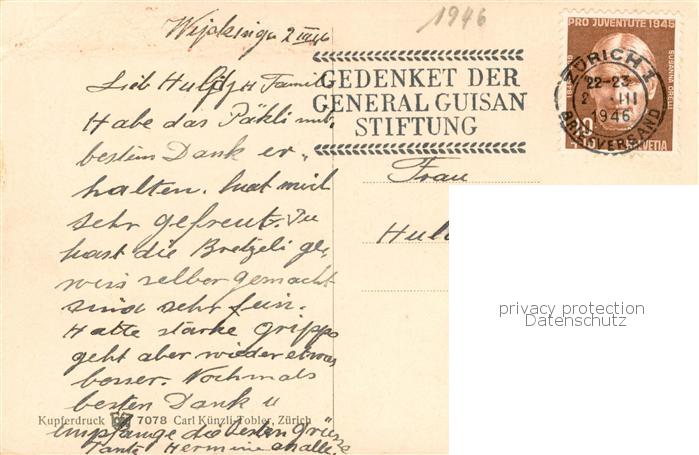 1946
2 III 46
PRO JUVENTUTE 1945
SUSANNA ORELLI
10
HELVETIA
ZÜRICH 1
22-23
2. III
1946
BRIEFVERSAND
GEDENKET DER
GENERAL GUISAN
STIFTUNG
Lieb Familie
Habe das Päkli mit
bestem Dank er-
halten. hat mich
sehr gefreut. Du
hast die Bretzeli ge-
wiss selber gemacht
sind sehr fein.
Hatte starke Grippe
geht aber wieder etwas
besser. Nochmals
besten Dank u
empfange die besten Grüsse
Tante Hermine
Frau
Kupferdruck 7078 Carl Künzli-Tobler, Zürich
privacy protection
Datenschutz